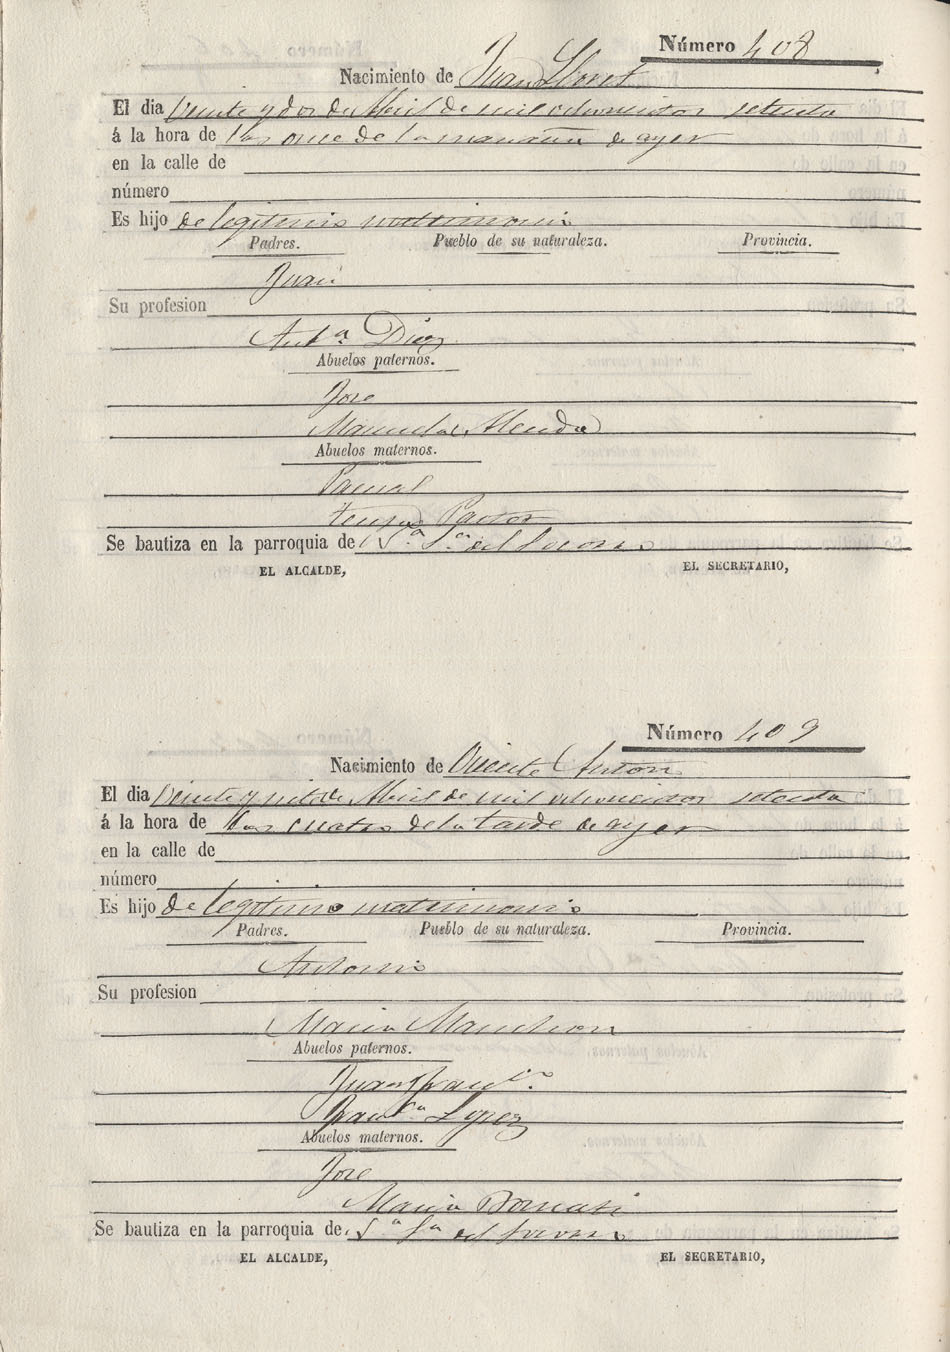 Número 408
Nacimiento de Juan Lloret
El dia Veinte y dos de Abril de mil ochocientos setenta
á la hora de las once de la mañana de ayer
en la calle de
número
Es hijo de legitimo matrimonio
Padres. Pueblo de su naturaleza. Provincia.
Juan
Su profesion
Antª Diez
Abuelos paternos.
Jose
Manuela Alenda
Abuelos maternos.
Pascual
Teresa Pastor
Se bautiza en la parroquia de Sª del Socorro
EL ALCALDE, EL SECRETARIO,
Número 409
Nacimiento de Vicente Anton
El dia Veinte y siete de Abril de mil ochocientos setenta
á la hora de las cuatro de la tarde de ayer
en la calle de
número
Es hijo de legitimo matrimonio
Padres. Pueblo de su naturaleza. Provincia.
Antonio
Su profesion
Maria Manchon
Abuelos paternos.
Juan Franco
Francª Lopez
Abuelos maternos.
Jose
Maria
Se bautiza en la parroquia de Sª del Socorro
EL ALCALDE, EL SECRETARIO,